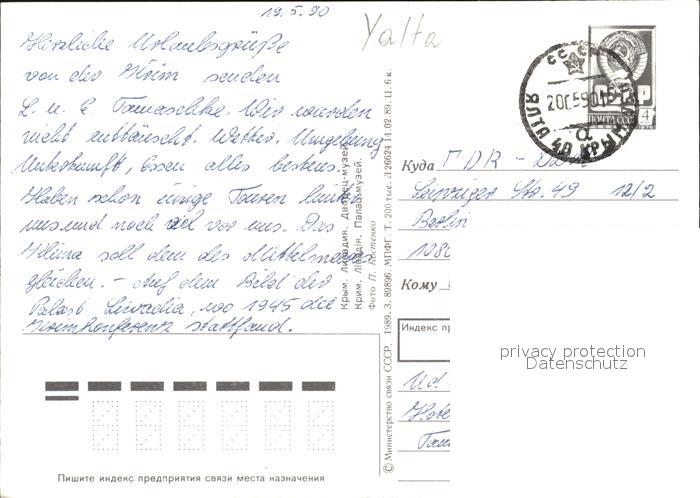 19.5.90
Yalta
Herzliche Urlaubsgrüße
von der Krim senden
L. u. E. Tomaschke. Wir wurden
nicht enttäuscht. Wetter, Umgebung
Unterkunft, Essen alles bestens.
Haben schon einige Touren hinter
uns und noch viel vor uns. Das
Klima soll dem des Mittelmeeres
gleichen. – Auf dem Bild der
Palast Livadia, wo 1945 die
Krimkonferenz stattfand.
Крым. Ливадия. Дворец-музей.
Крим. Лівадія. Палац-музей.
Фото П. Костенко
© Министерство связи СССР, 1989. З. 89896. МПФГ. Т. 200 тыс. Л 26624 14.02.89. Ц. 6 к.
СССР
ПОЧТА СССР
4
Куда ГДР -
Leipziger Str. 49 12/2
Berlin
1080
Кому
Индекс пр
privacy protection
Datenschutz
Ud.
Hote
Пишите индекс предприятия связи места назначения